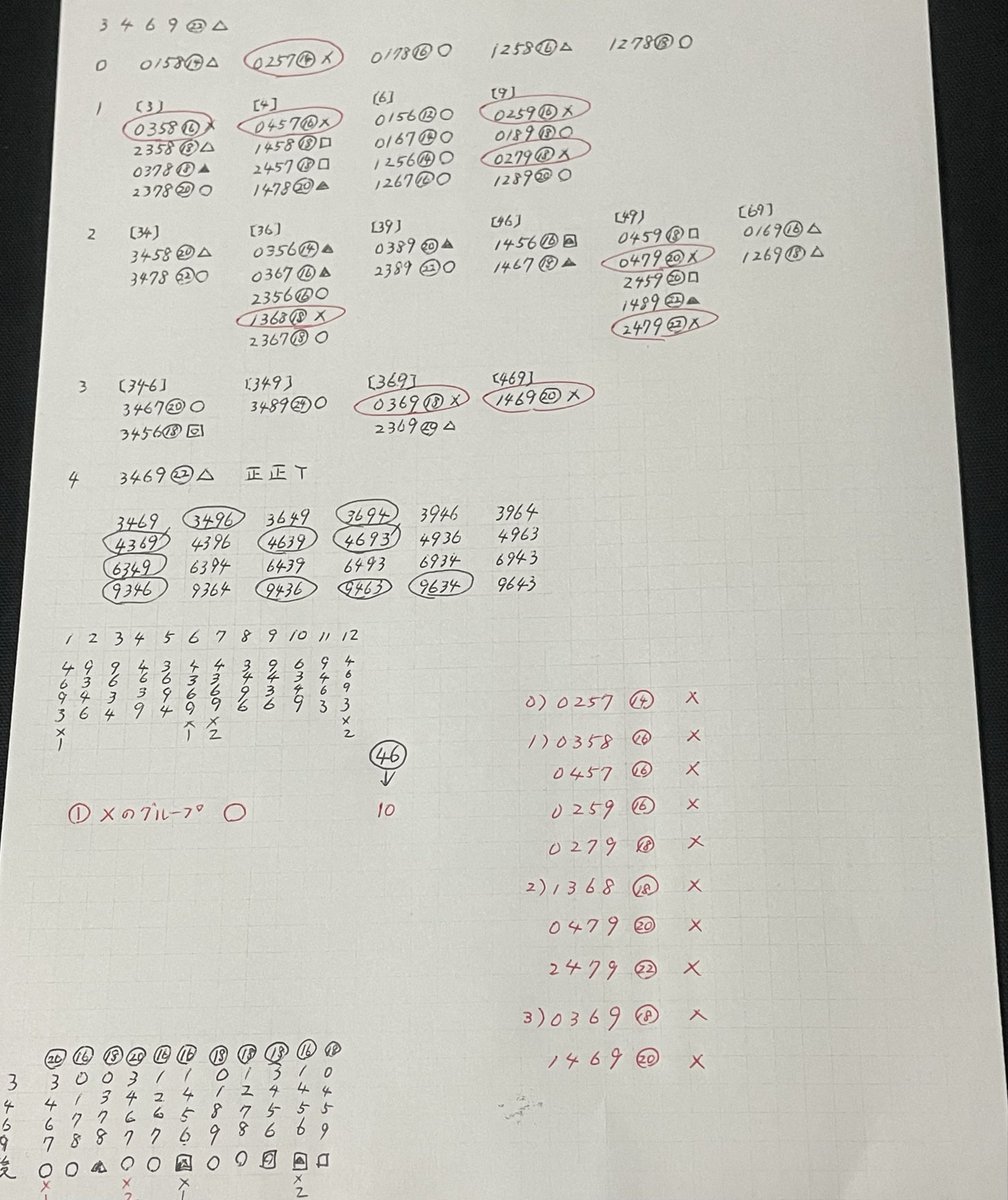 3 4 6 9 ㉒ △
0 0158⑭△ 0257⑭× 0178⑯○ 1258⑯△ 1278⑱○
1 [3] [4] [6] [9]
0358⑯× 0457⑯× 0156⑫○ 0259⑯×
2358⑱△ 1458⑱□ 0167⑭○ 0189⑱○
0378⑱▲ 2457⑱□ 1256⑭○ 0279⑱×
2378⑳○ 1478⑳▲ 1267⑯○ 1289⑳○
2 [34] [36] [39] [46] [49] [69]
3458⑳△ 0356⑭▲ 0389⑳▲ 1456⑯ 0459⑱□ 0169⑯△
3478㉒○ 0367⑯▲ 2389㉒○ 1467⑱▲ 0479⑳× 1269⑱△
2356⑯○ 2459⑳□
1368⑱× 1489㉒▲
2367⑱○ 2479㉒×
3 [346] [349] [369] [469]
3467⑳○ 3489㉔○ 0369⑱× 1469⑳×
3456⑱ 2369⑳△
4 3469㉒△ 正正丅
3469 3496 3649 3694 3946 3964
4369 4396 4639 4693 4936 4963
6349 6394 6439 6493 6934 6943
9346 9364 9436 9463 9634 9643
1 2 3 4 5 6 7 8 9 10 11 12
4 9 9 4 3 4 4 3 9 6 9 4
6 3 6 6 6 3 3 4 4 3 4 6
9 4 3 3 9 6 6 9 3 4 6 9
3 6 4 9 4 9 9 6 6 9 3 3
× × × ×
1 1 2 2
㊻
↓
① ×のグループ ○ 10
0) 0257 ⑭ ×
1) 0358 ⑯ ×
0457 ⑯ ×
0259 ⑯ ×
0279 ⑱ ×
2) 1368 ⑱ ×
0479 ⑳ ×
2479 ㉒ ×
3) 0369 ⑱ ×
1469 ⑳ ×
⑳ ⑯ ⑱ ⑳ ⑯ ⑯ ⑱ ⑱ ⑱ ⑯ ⑱
3 3 0 0 3 1 1 0 1 3 1 0
4 4 1 3 4 2 4 1 2 4 4 4
6 6 7 7 6 6 5 8 7 5 5 5
9 7 8 8 7 7 6 9 8 6 6 9
○ ○ ▲ ○ ○ ○ ○ □
× × × ×
2 2